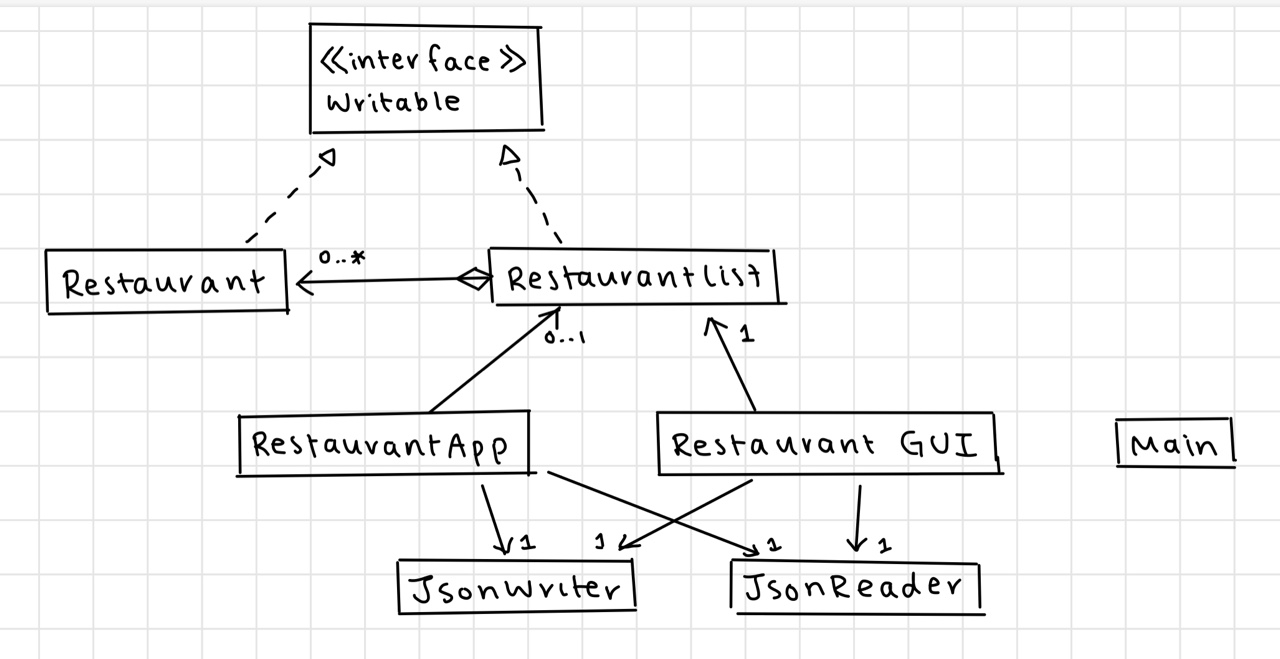 <<interface>>
Writable
0..*
Restaurant
Restaurantlist
0..1
1
RestaurantApp
Restaurant GUI
Main
1
1
1
1
JsonWriter
JsonReader